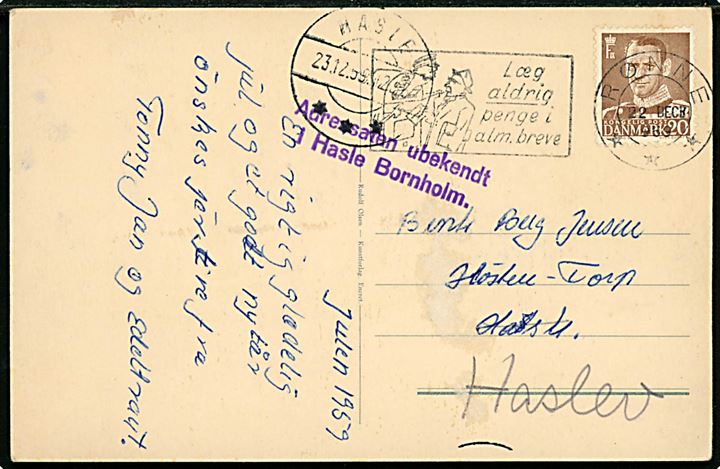 Julen 1959
En rigtig glædelig
jul og et godt nytår
ønskes jer
Tonny Jan og Edeltraut.
Rudolf Olsen - Kunstforlag. Eneret.
HASLE
23.12.59
Læg
aldrig
penge i
alm. breve
RØNNE
22 DECB
KONGELIG POST
DANMARK 20
Adressaten ubekendt
i Hasle Bornholm.
Bent Berg Jensen
Høsten-Torp
Haslev